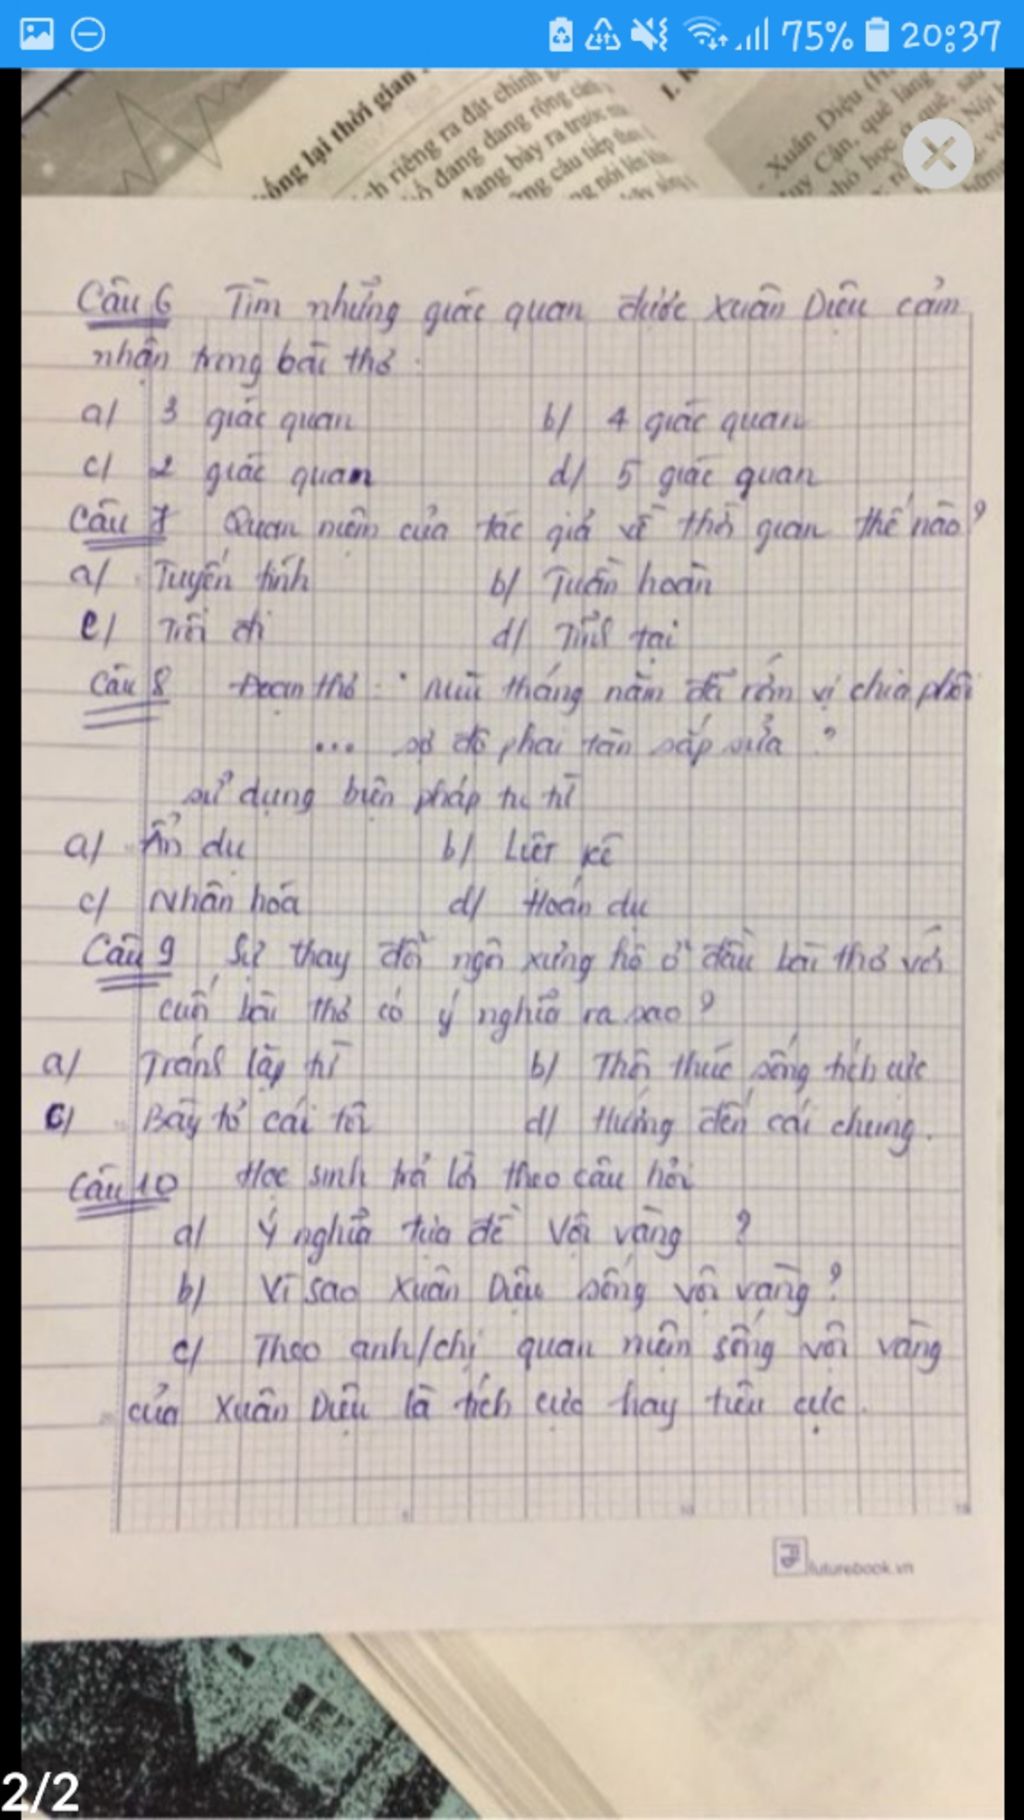 75% 20:37
ống lại thời gian
h riêng ra đặt chính
đang dang rộng cánh
đang bày ra trước
ng câu tiếp theo
ng nói lên
I. K
Xuân Diệu (H
uy Cận, quê làng
nhỏ học ở quê, sau
Câu 6 Tìm những giác quan được Xuân Diệu cảm
nhận trong bài thơ.
a/ 3 giác quan b/ 4 giác quan
c/ 2 giác quan d/ 5 giác quan
Câu 7 Quan niệm của tác giả về thời gian thế nào?
a/ Tuyến tính b/ Tuần hoàn
c/ Trôi đi d/ Tĩnh tại
Câu 8 Đoạn thơ: "Mùi tháng năm đã rớm vị chia phôi
... sợ độ phai tàn sắp sửa ?
sử dụng biện pháp tu từ
a/ Ẩn dụ b/ Liệt kê
c/ Nhân hóa d/ Hoán dụ
Câu 9 Sự thay đổi ngôi xưng hô ở đầu bài thơ với
cuối bài thơ có ý nghĩa ra sao?
a/ Tránh lặp từ b/ Thôi thúc sống tích cực
c/ Bày tỏ cái tôi d/ Hướng đến cái chung.
Câu 10 Học sinh trả lời theo câu hỏi
a/ Ý nghĩa tựa đề Vội vàng ?
b/ Vì sao Xuân Diệu sống vội vàng?
c/ Theo anh/chị quan niệm sống vội vàng
của Xuân Diệu là tích cực hay tiêu cực.
futurebook.vn
2/2